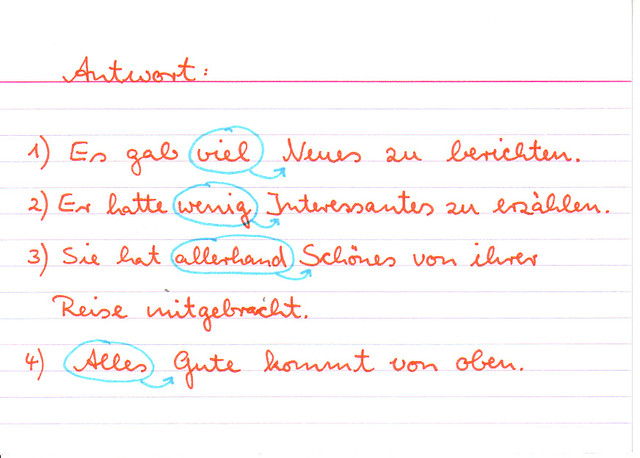 Antwort:
1) Es gab viel Neues zu berichten.
2) Er hatte wenig Interessantes zu erzählen.
3) Sie hat allerhand Schönes von ihrer
Reise mitgebracht.
4) Alles Gute kommt von oben.